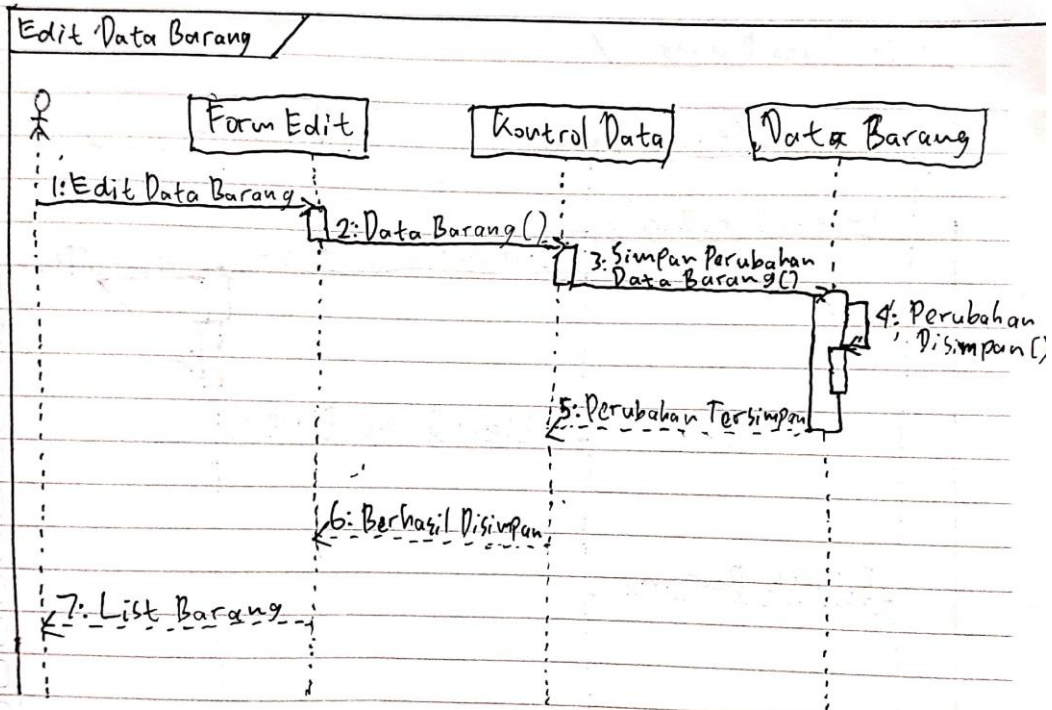 Edit Data Barang
Form Edit
Kontrol Data
Data Barang
1: Edit Data Barang
2: Data Barang ()
3: Simpan Perubahan
Data Barang ()
4: Perubahan
Disimpan ()
5: Perubahan Tersimpan
6: Berhasil Disimpan
7: List Barang